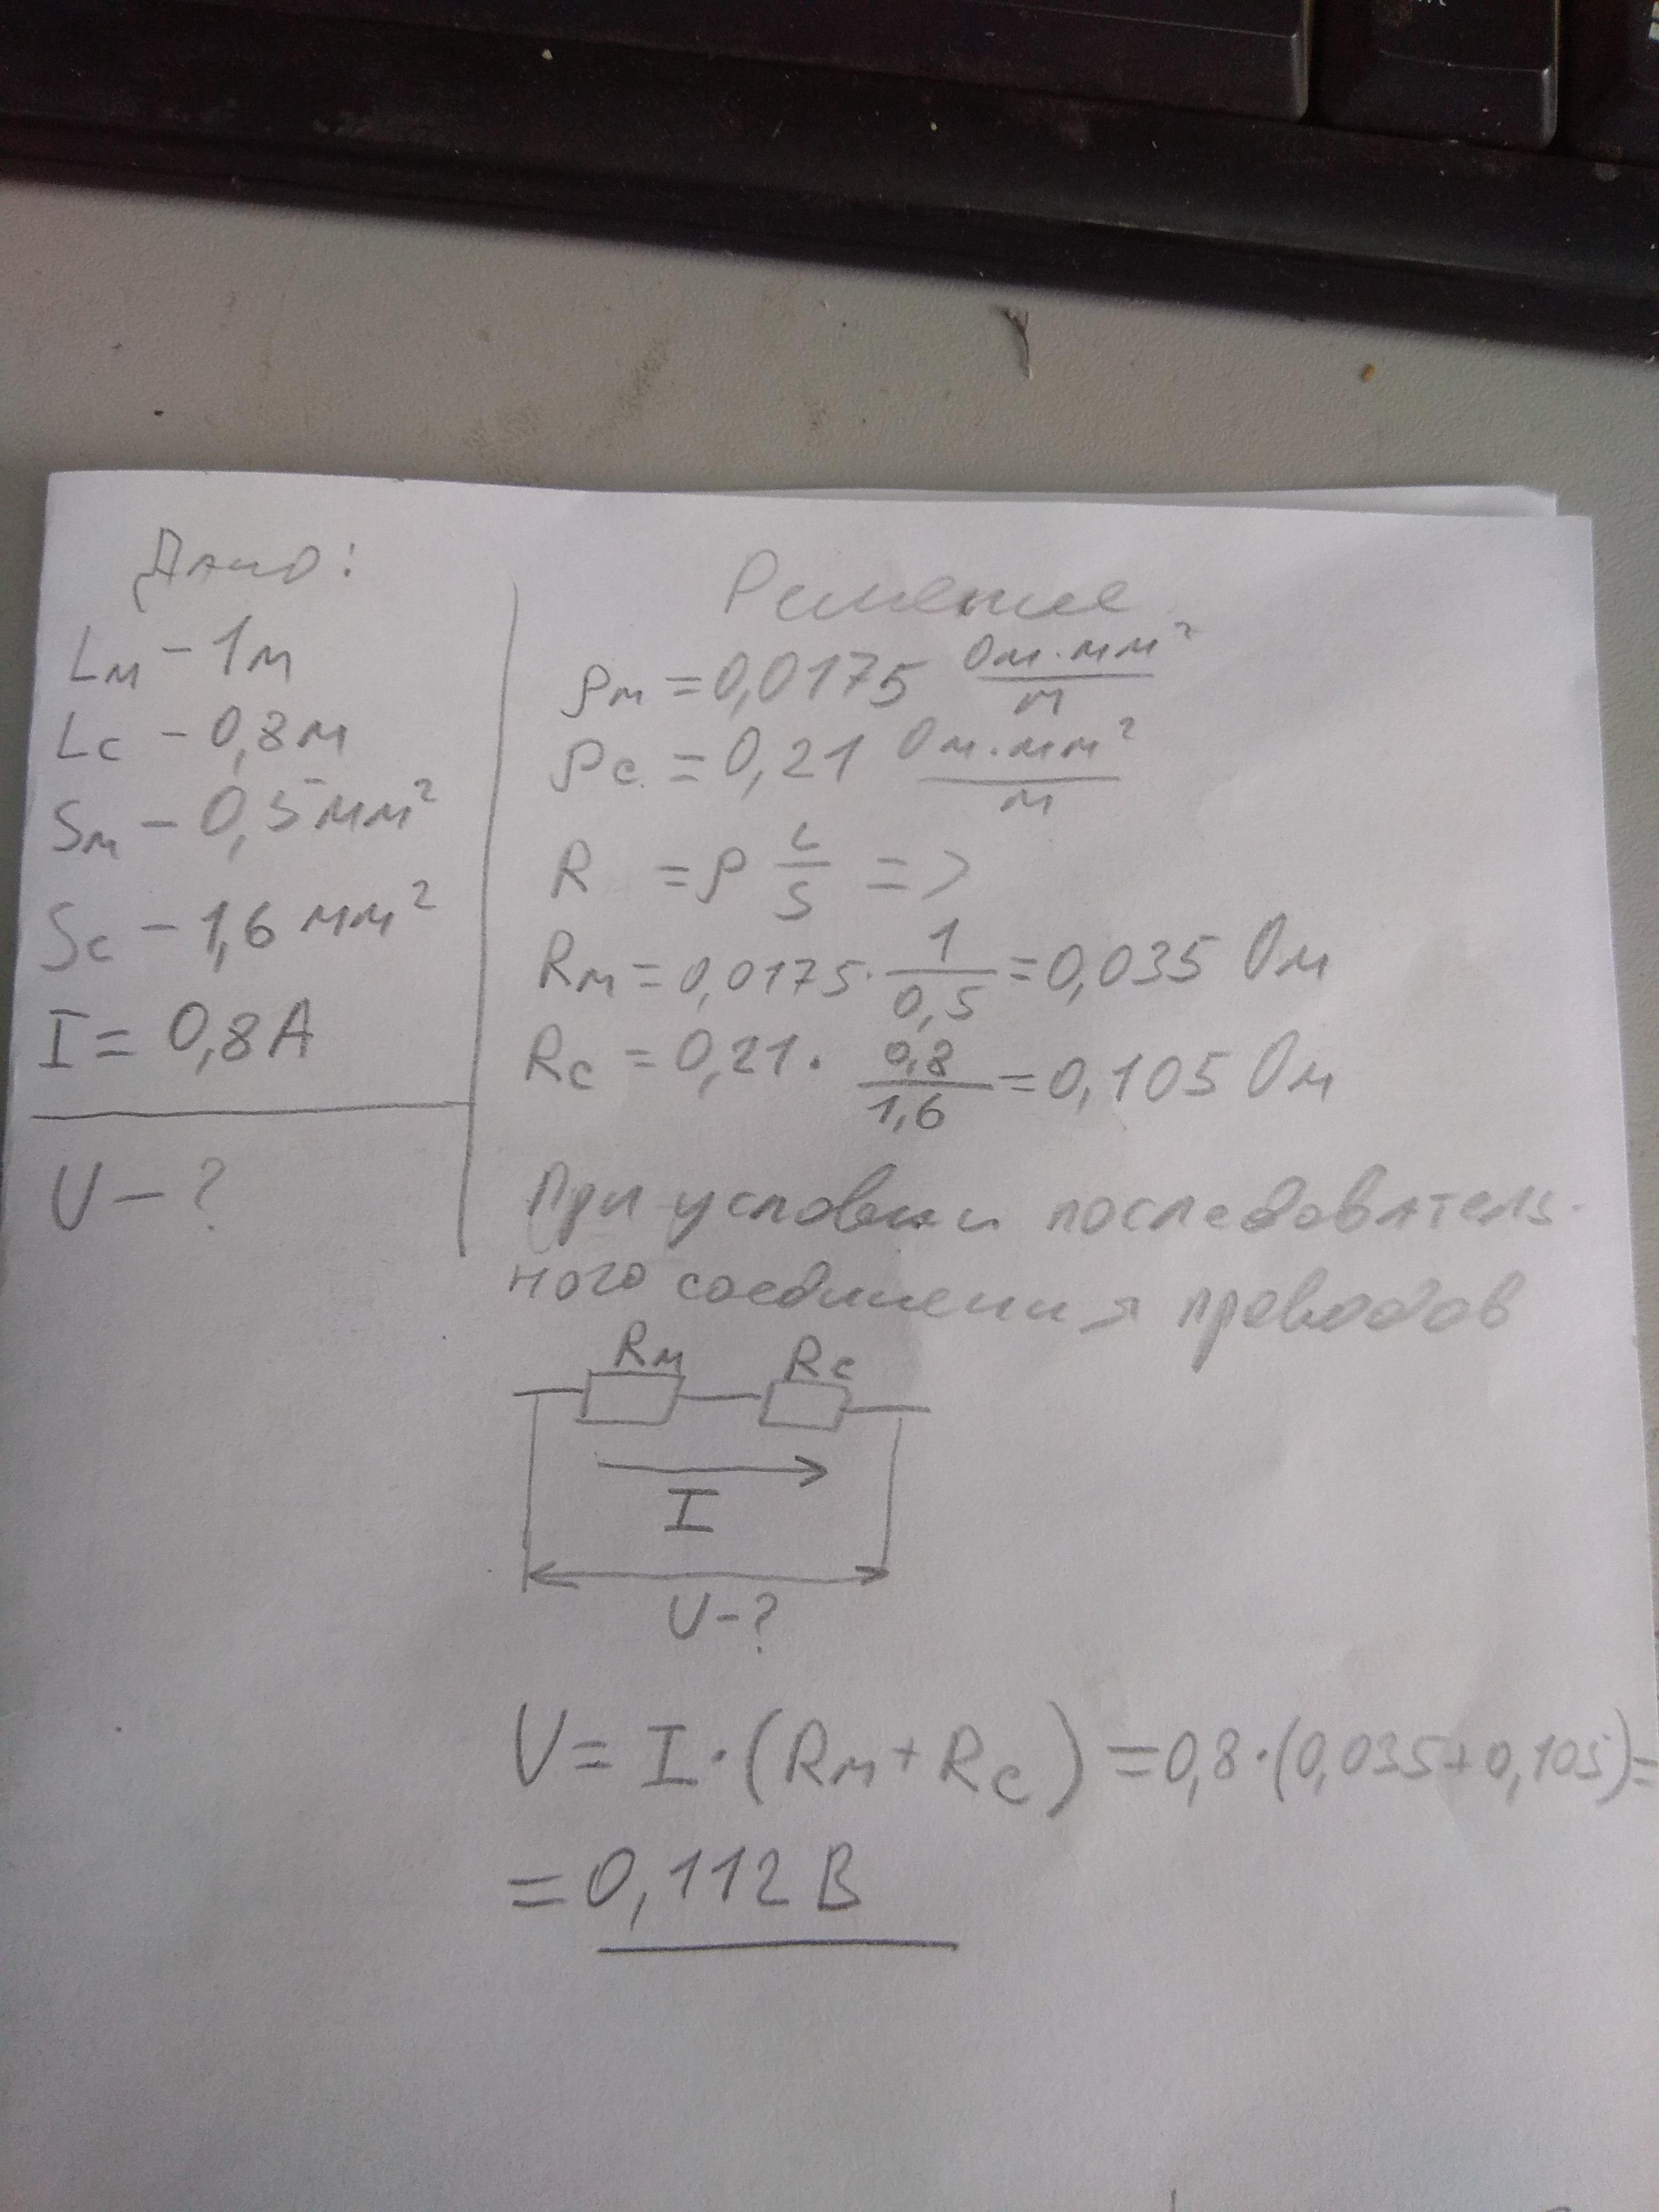 Дано:
Lм - 1м
Lс - 0,8м
Sм - 0,5 мм²
Sс - 1,6 мм²
I = 0,8А
U - ?
Решение
ρм = 0,0175 Ом·мм²/м
ρс = 0,21 Ом·мм²/м
R = ρ L/S =>
Rм = 0,0175 · 1/0,5 = 0,035 Ом
Rс = 0,21 · 0,8/1,6 = 0,105 Ом
При условии последователь-
ного соединения проводов
Rм Rс
I
U-?
U = I · (Rм + Rс) = 0,8 · (0,035 + 0,105) =
= 0,112 В